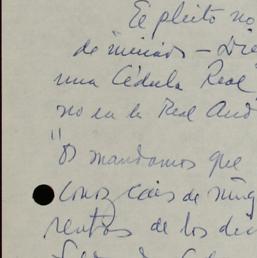 El pleito no
de menias – Die
una Cédula Real
no en la Real Aud
"Os mandamos que
conozcais de ning
rentas de los die